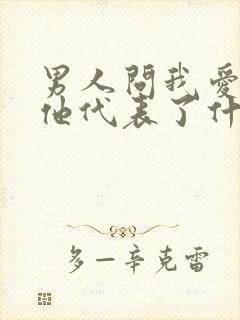 男人問我愛
他代表了什
多一辛克雷